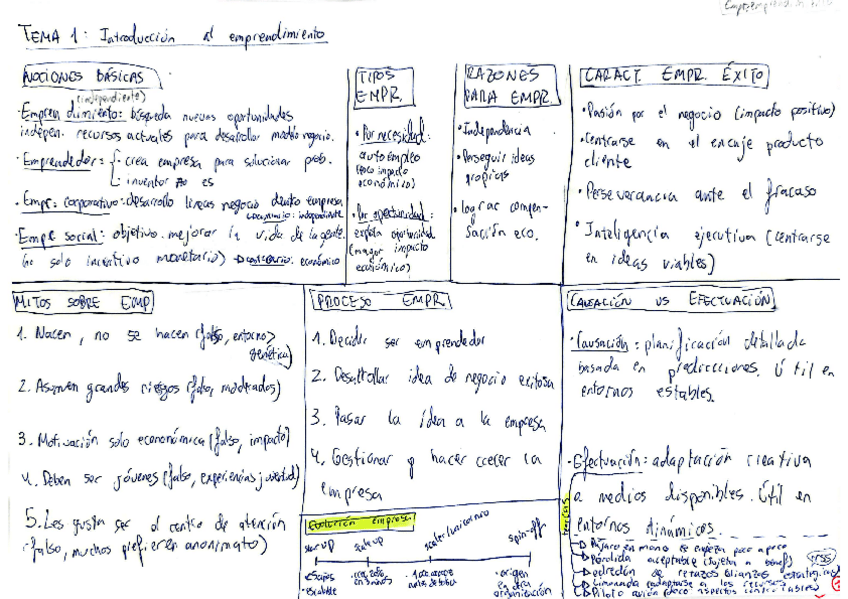 TEMA 1: Introducción al emprendimiento
NOCIONES BÁSICAS
(independiente)
· Emprendimiento: búsqueda nuevas oportunidades
indepen. recursos actuales para desarrollar modelo negocio.
· Emprendedor: crea empresa para solucionar prob.
inventor no es
· Empr. corporativo: desarrollo líneas negocio dentro empresa
contrario: independiente
· Empr social: objetivo mejorar la vida de la gente.
(no solo incentivo monetario) → contrario: económico
TIPOS
EMPR.
· Por necesidad:
autoempleo
(poco impacto
económico)
· Por oportunidad:
explota oportunidad
(mayor impacto
económico)
RAZONES
PARA EMPR.
· Independencia
· Perseguir ideas
propias
· lograr compen-
sación eco.
CARACT. EMPR. ÉXITO
· Pasión por el negocio (impacto positivo)
· Centrarse en el encaje producto
cliente
· Perseverancia ante el fracaso
· Inteligencia ejecutiva (centrarse
en ideas viables)
MITOS SOBRE EMP
1. Nacen, no se hacen (falso, entorno>
genética)
2. Asumen grandes riesgos (falso, moderados)
3. Motivación solo económica (falso, impacto)
4. Deben ser jóvenes (falso, experiencia y juventud)
5. Les gusta ser el centro de atención
(falso, muchos prefieren anonimato)
PROCESO EMPR.
1. Decidir ser emprendedor
2. Desarrollar idea de negocio exitosa
3. Pasar la idea a la empresa
4. Gestionar y hacer crecer la
empresa
Evolución empresa
start up
scale up
scaler/unicornio
spin-off
· escalable
· origen
en otra
organización
CAUSACIÓN VS EFECTUACIÓN
· Causación: planificación detallada
basada en predicciones. Útil en
entornos estables.
· Efectuación: adaptación creativa
a medios disponibles. Útil en
entornos dinámicos.
Pájaro en mano se empieza poco a poco
Pérdida aceptable (sujeta a